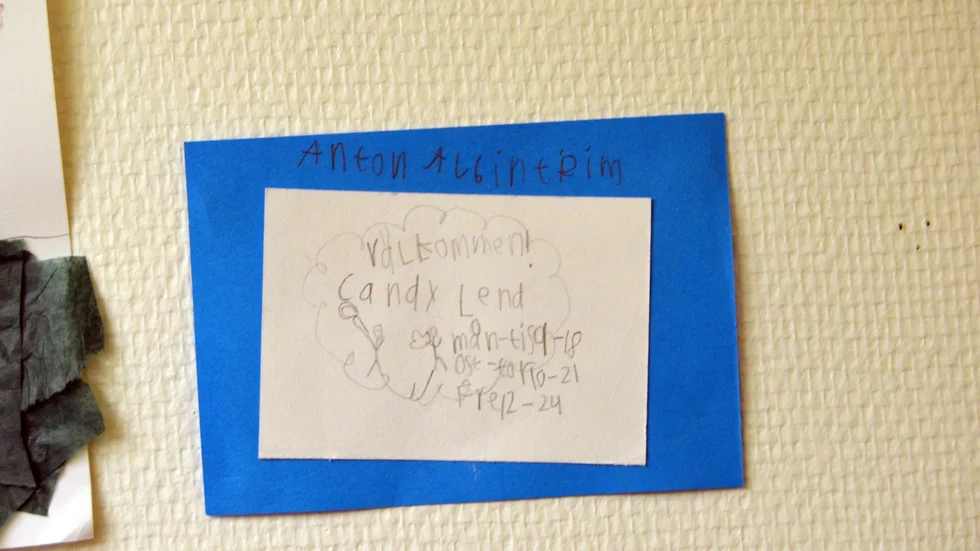 Anton Albin tRim
Välkommen!
Candy Lend
mån-tis 9-18
-tor 10-21
Fre 12-24